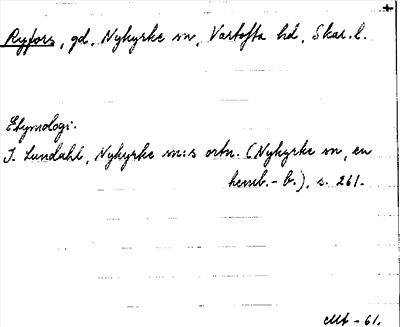 Ryfors, gd, Nykyrke sn, Vartofta hd, Skar. l.
Etymologi.
I. Lundahl, Nykyrke sn:s ortn. (Nykyrke sn, en
hemb.-b.), s. 261.
-61.